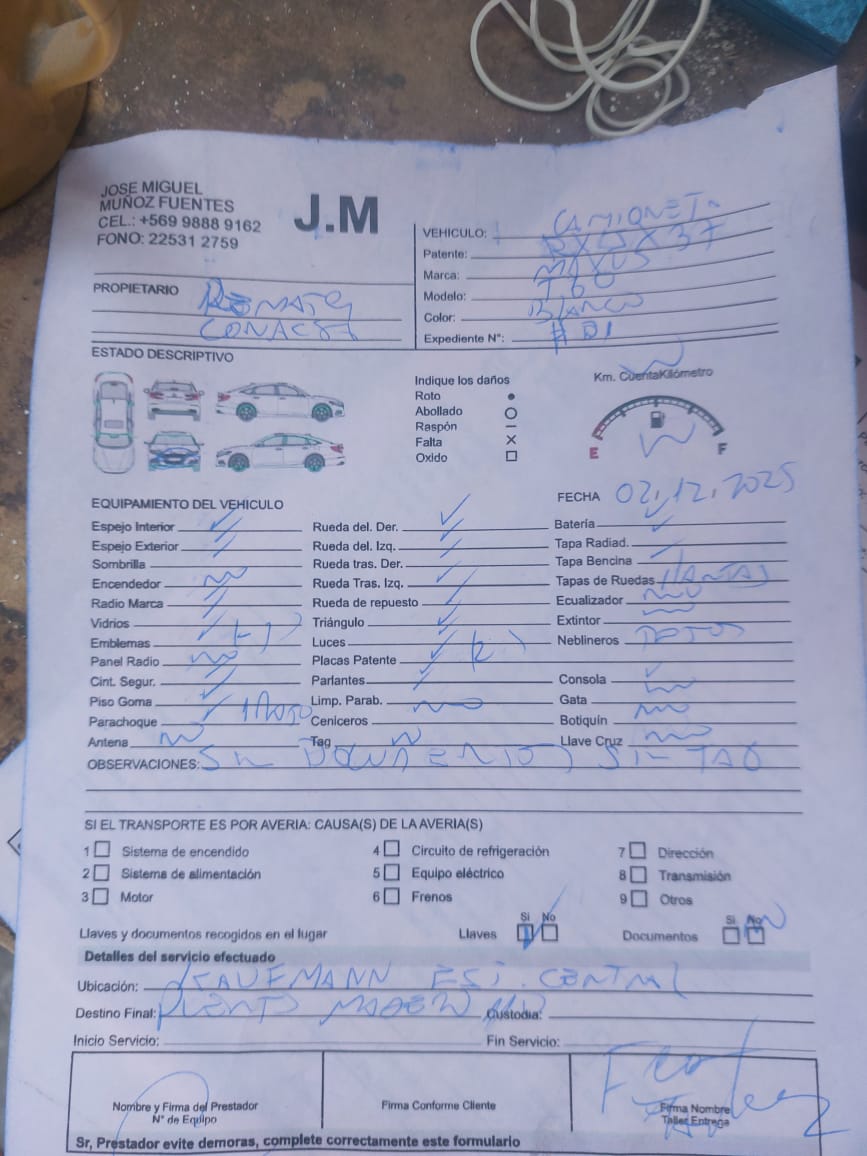 JOSE MIGUEL
MUÑOZ FUENTES
CEL.: +569 9888 9162
FONO: 22531 2759
J.M
VEHICULO: CAMIONETA
Patente:
Marca: MAXUS
Modelo: T60
Color: BLANCO
Expediente N°:
PROPIETARIO
ESTADO DESCRIPTIVO
Indique los daños
Roto
Abollado
Raspón
Falta
Oxido
Km. CuentaKilómetro
E F
EQUIPAMIENTO DEL VEHICULO
FECHA 02,12,2025
Espejo Interior Rueda del. Der. Batería
Espejo Exterior Rueda del. Izq. Tapa Radiad.
Sombrilla Rueda tras. Der. Tapa Bencina
Encendedor no Rueda Tras. Izq. Tapas de Ruedas LLANTAS
Radio Marca Rueda de repuesto Ecualizador no
Vidrios Triángulo Extintor
Emblemas Luces Neblineros
Panel Radio no Placas Patente
Cint. Segur. Parlantes Consola
Piso Goma Limp. Parab. Gata
Parachoque Ceniceros Botiquín no
Antena Tag Llave Cruz no
OBSERVACIONES: SIN DOCUMENTOS SIN TAG
SI EL TRANSPORTE ES POR AVERIA: CAUSA(S) DE LA AVERIA(S)
1 Sistema de encendido 4 Circuito de refrigeración 7 Dirección
2 Sistema de alimentación 5 Equipo eléctrico 8 Transmisión
3 Motor 6 Frenos 9 Otros
Llaves y documentos recogidos en el lugar Llaves Si No Documentos Si No
Detalles del servicio efectuado
Ubicación: KAUFMANN EST. CENTRAL
Destino Final: Custodia:
Inicio Servicio: Fin Servicio:
Nombre y Firma del Prestador
N° de Equipo
Firma Conforme Cliente
Firma Nombre
Taller Entrega
Sr, Prestador evite demoras, complete correctamente este formulario